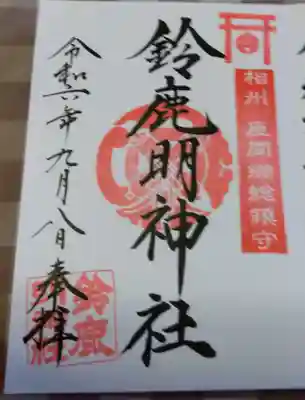 相州 座間郷総鎮守
鈴鹿明神社
令和六年九月八日 奉拝
鈴鹿明神社